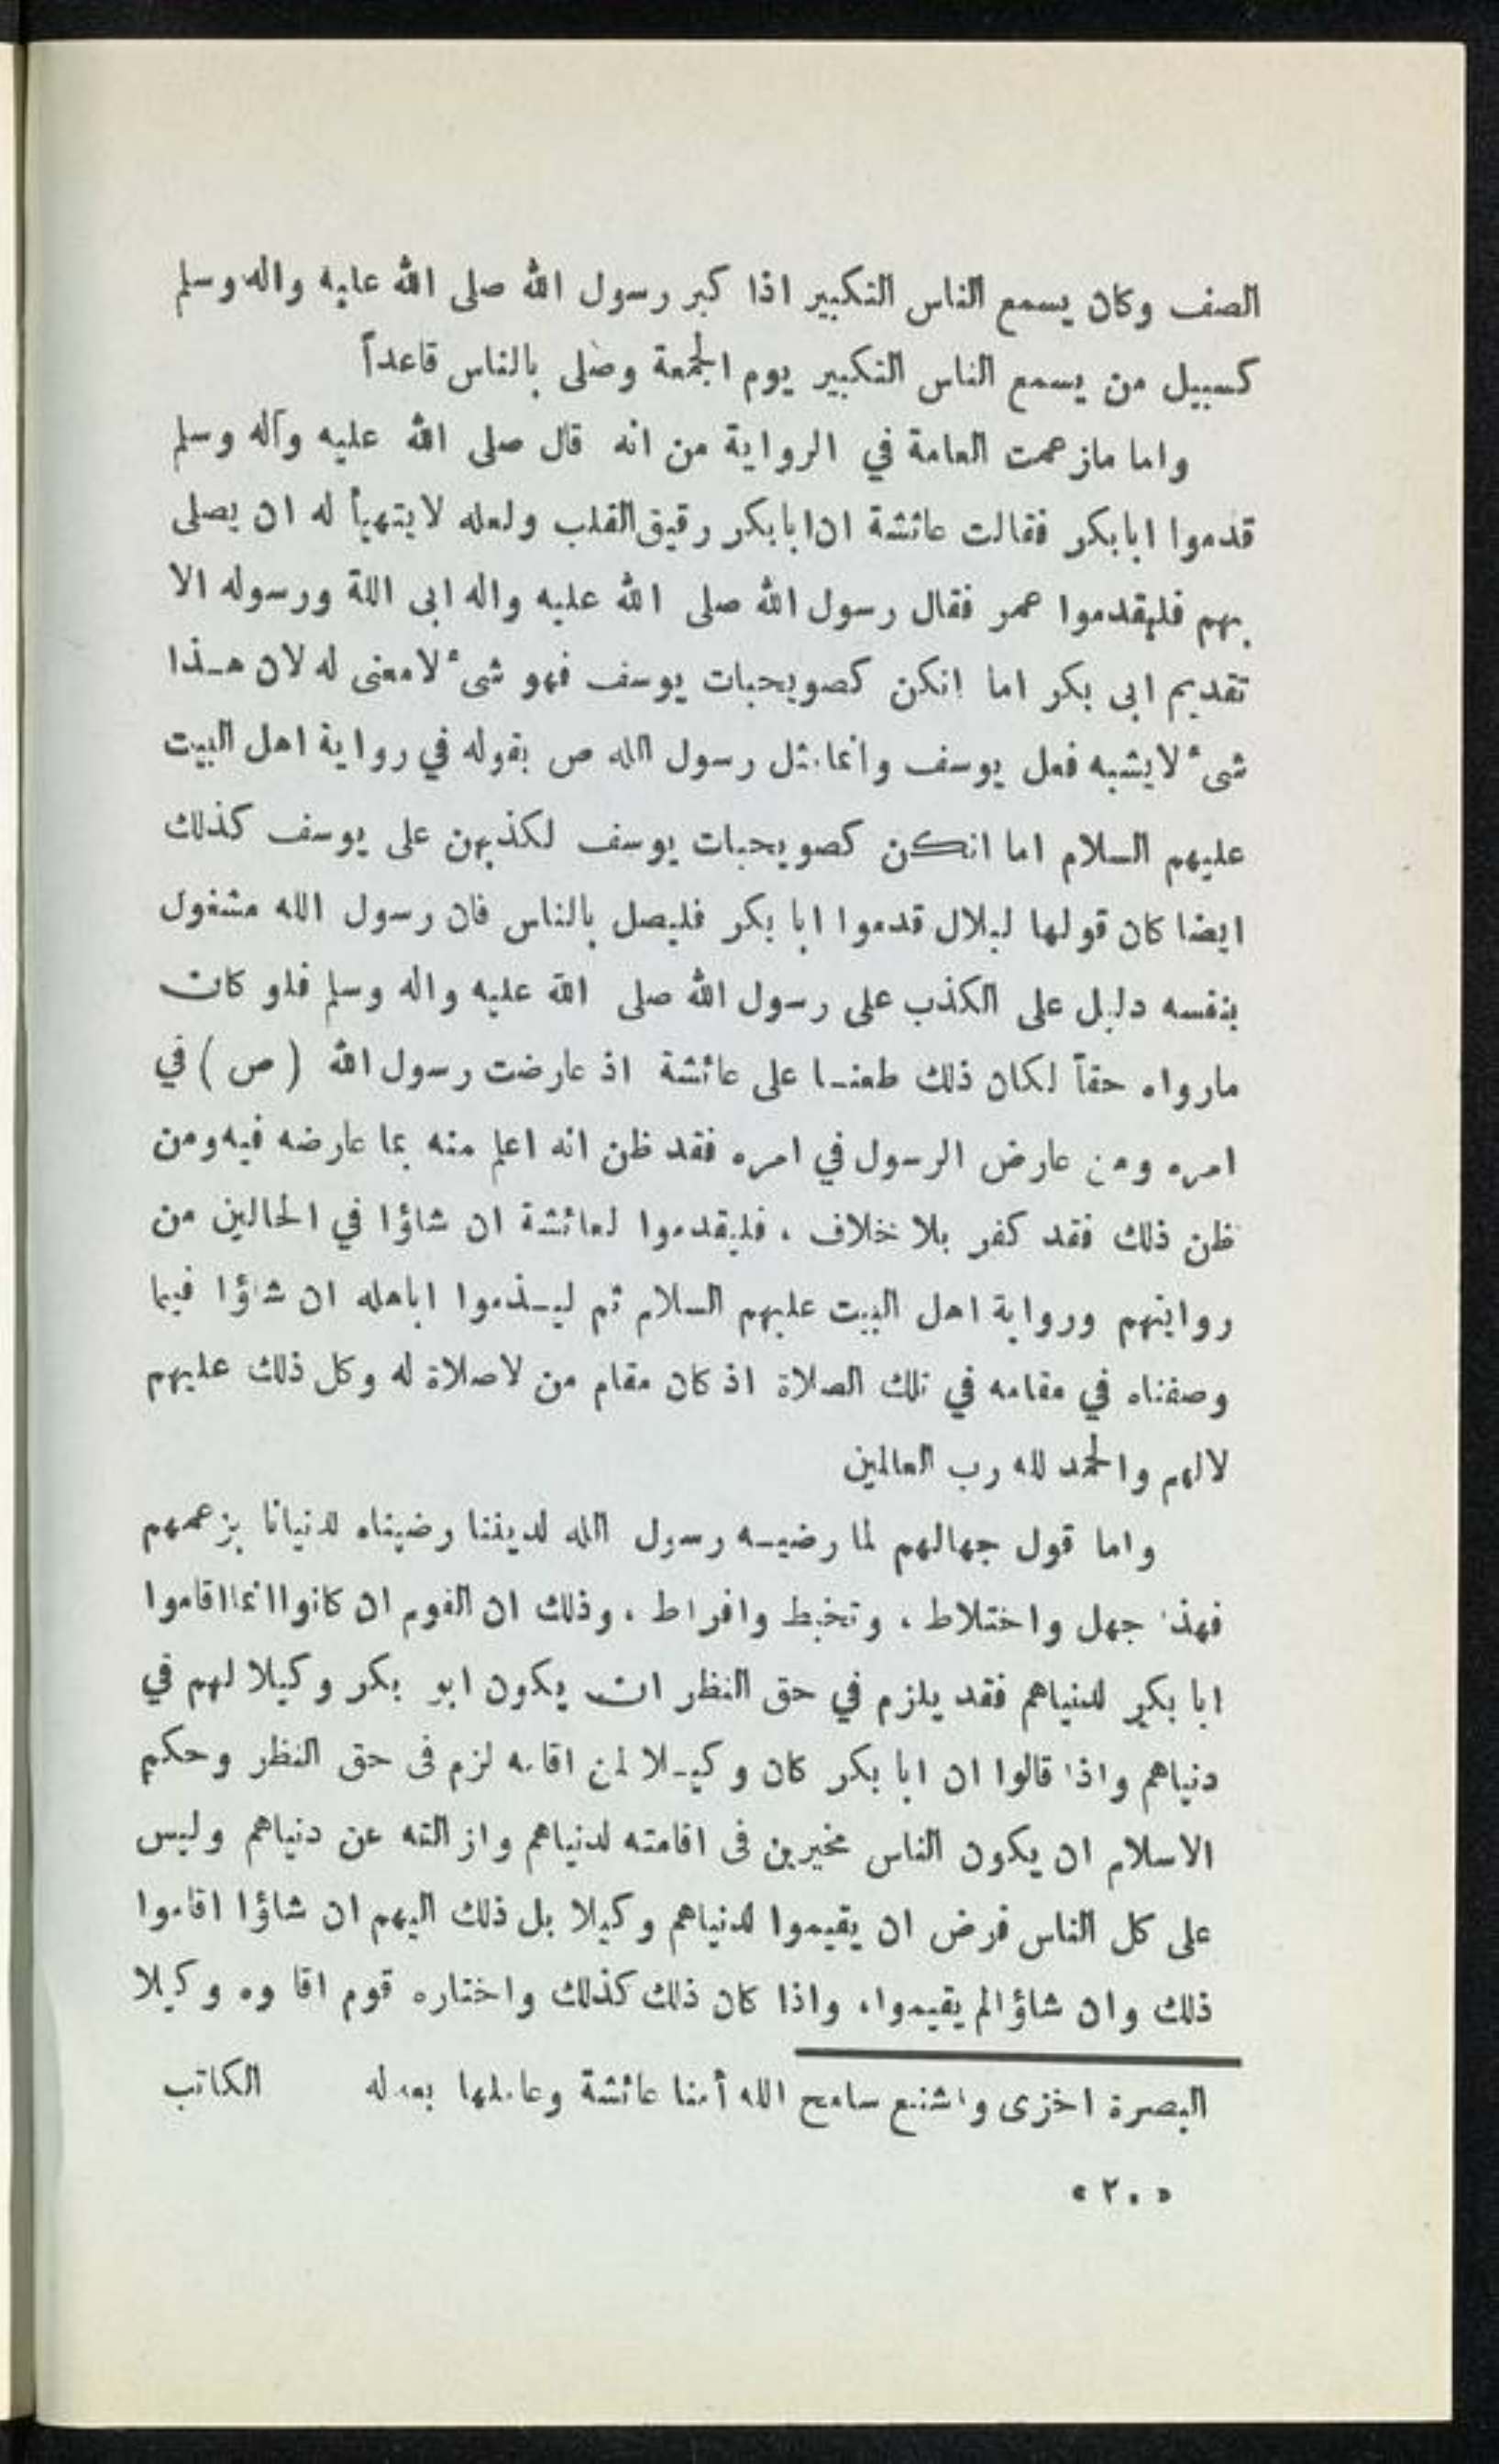 الصف وكان يسمع الناس التكبير اذا كبر رسول الله صلى الله عليه واله وسلم
كسبيل من يسمع الناس التكبير يوم الجمعة وصلى بالناس قاعداً
واما مازعمت العامة في الرواية من انه قال صلى الله عليه وآله وسلم
قدموا ابابكر فقالت عائشة ان ابابكر رقيق القلب ولعله لا يتهيأ له ان يصلى
بهم فليقدموا عمر فقال رسول الله صلى الله عليه واله ابى الله ورسوله الا
تقديم ابى بكر اما انكن كصويحبات يوسف فهو شىء لامعنى له لان هـذا
شىء لايشبه فعل يوسف وانما مثل رسول الله ص بقوله في رواية اهل البيت
عليهم السلام اما انكن كصويحبات يوسف لكذبهن على يوسف كذلك
ايضا كان قولها لبلال قدموا ابا بكر فليصل بالناس فان رسول الله مشغول
بنفسه دليل على الكذب على رسول الله صلى الله عليه واله وسلم فلو كان
مارواه حقاً لكان ذلك طعنـا على عائشة اذ عارضت رسول الله ( ص ) في
امره ومن عارض الرسول في امره فقد ظن انه اعلم منه بما عارضه فيه ومن
ظن ذلك فقد كفر بلا خلاف ، فليقدموا لعائشة ان شاؤا في الحالين من
روايتهم ورواية اهل البيت عليهم السلام ثم ليـذموا اباهله ان شاؤا فيما
وصفناه في مقامه في تلك الصلاة اذ كان مقام من لاصلاة له وكل ذلك عليهم
لالهم والحمد لله رب العالمين
واما قول جهالهم لما رضيـه رسول الله لديننا رضيناه لدنيانا بزعمهم
فهذا جهل واختلاط ، وتخبط وافراط ، وذلك ان القوم ان كانوا انما اقاموا
ابا بكر لدنياهم فقد يلزم في حق النظر ان يكون ابو بكر وكيلا لهم في
دنياهم واذا قالوا ان ابا بكر كان وكيـلا لمن اقامه لزم فى حق النظر وحكم
الاسلام ان يكون الناس مخيرين فى اقامته لدنياهم وازالته عن دنياهم وليس
على كل الناس فرض ان يقيموا لدنياهم وكيلا بل ذلك اليهم ان شاؤا اقاموا
ذلك وان شاؤالم يقيموا، واذا كان ذلك كذلك واختاره قوم اقا وه وكيلا
البصرة اخزى واشنع سامح الله أمنا عائشة وعاملها بعدله الكاتب
«٢٠»